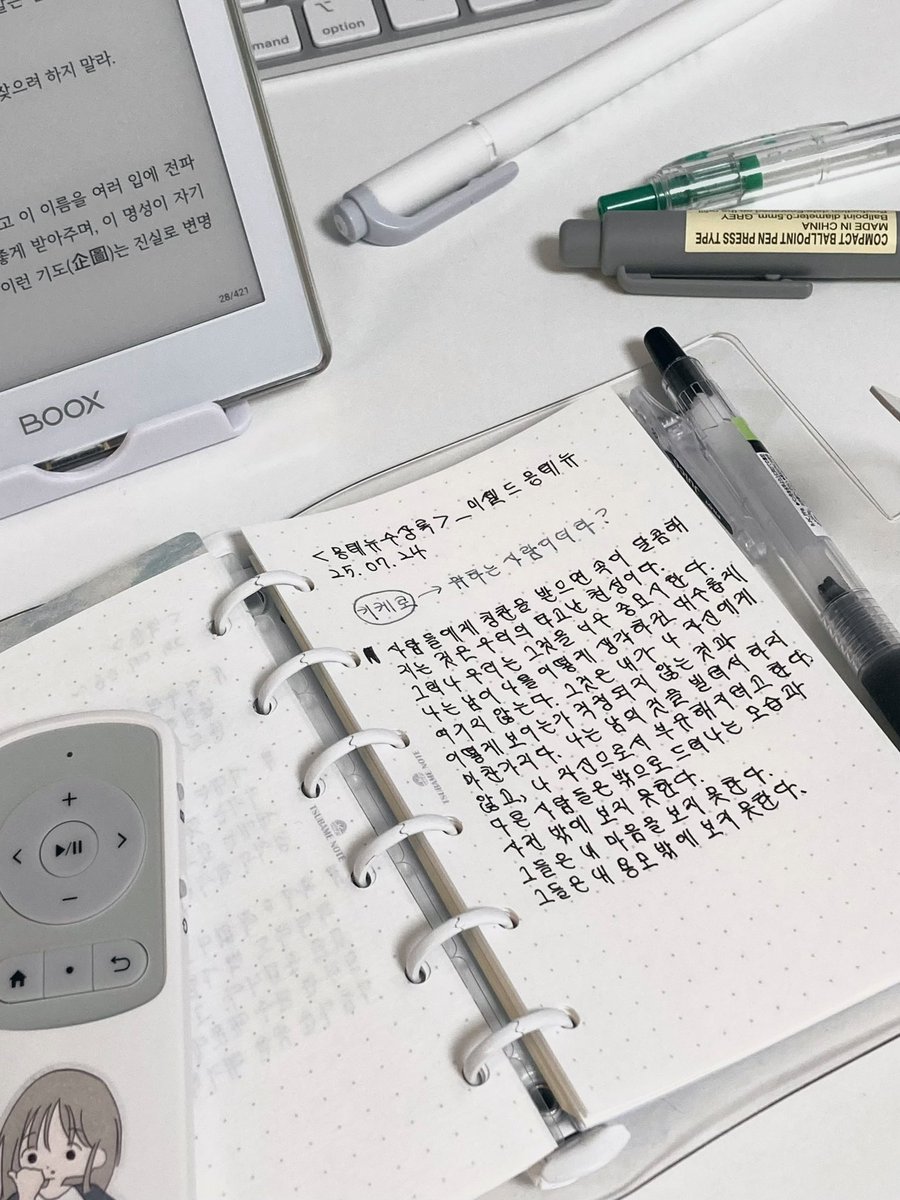 mand
option
찾으려 하지 말라.
고 이 이름을 여러 입에 전파
좋게 받아주며, 이 명성이 자기
이런 기도(企圖)는 진실로 변명
28/421
BOOX
COMPACT BALLPOINT PEN PRESS TYPE
Ballpoint diameter:0.5mm, GREY
MADE IN CHINA
<몽테뉴수상록>_미셸 드 몽테뉴
25.07.24
키케로 → 뭐하는 사람이더라?
사람들에게 칭찬을 받으면 속이 달콤해
지는 것은 우리의 타고난 천성이다.
그러나 우리는 그것을 너무 중요시한다.
나는 남이 나를 어떻게 생각하건 대수롭게
여기지 않는다. 그것은 내가 나 자신에게
어떻게 보이는가 걱정되지 않는 것과
마찬가지다. 나는 남의 것을 빌려서 하지
않고, 나 자신으로서 부유해지려고 한다.
다른 사람들은 밖으로 드러나는 모습과
사건 밖에 보지 못한다.
그들은 내 마음을 보지 못한다.
그들은 내 용모 밖에 보지 못한다.
TSUBAME NOTE
TSUBAME NOTE